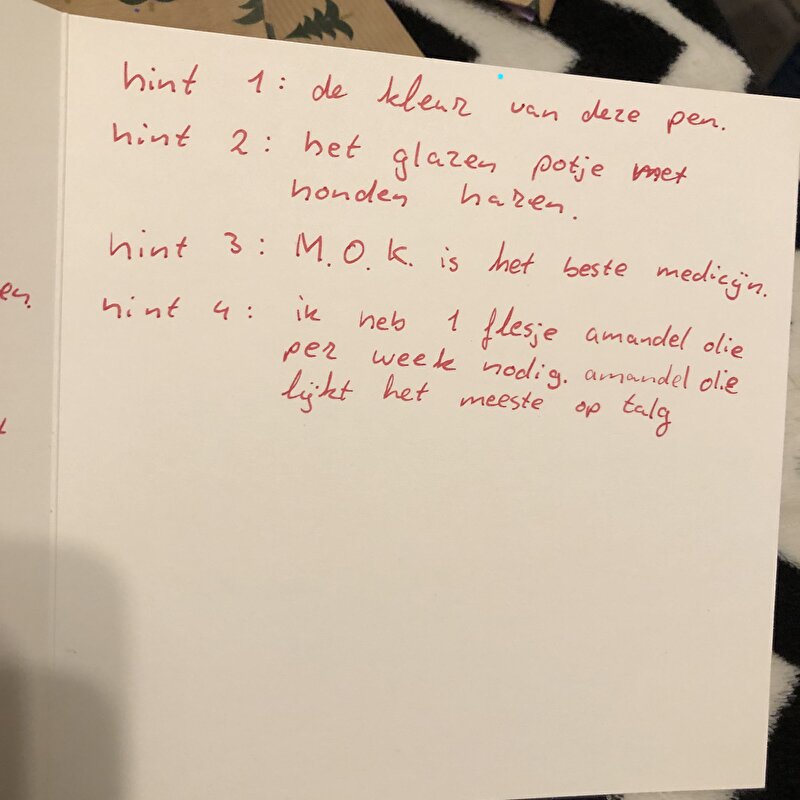 hint 1: de kleur van deze pen.
hint 2: het glazen potje met
honden haren.
hint 3: M.O.K. is het beste medicijn.
hint 4: ik heb 1 flesje amandel olie
per week nodig. amandel olie
lijkt het meeste op talg
en.